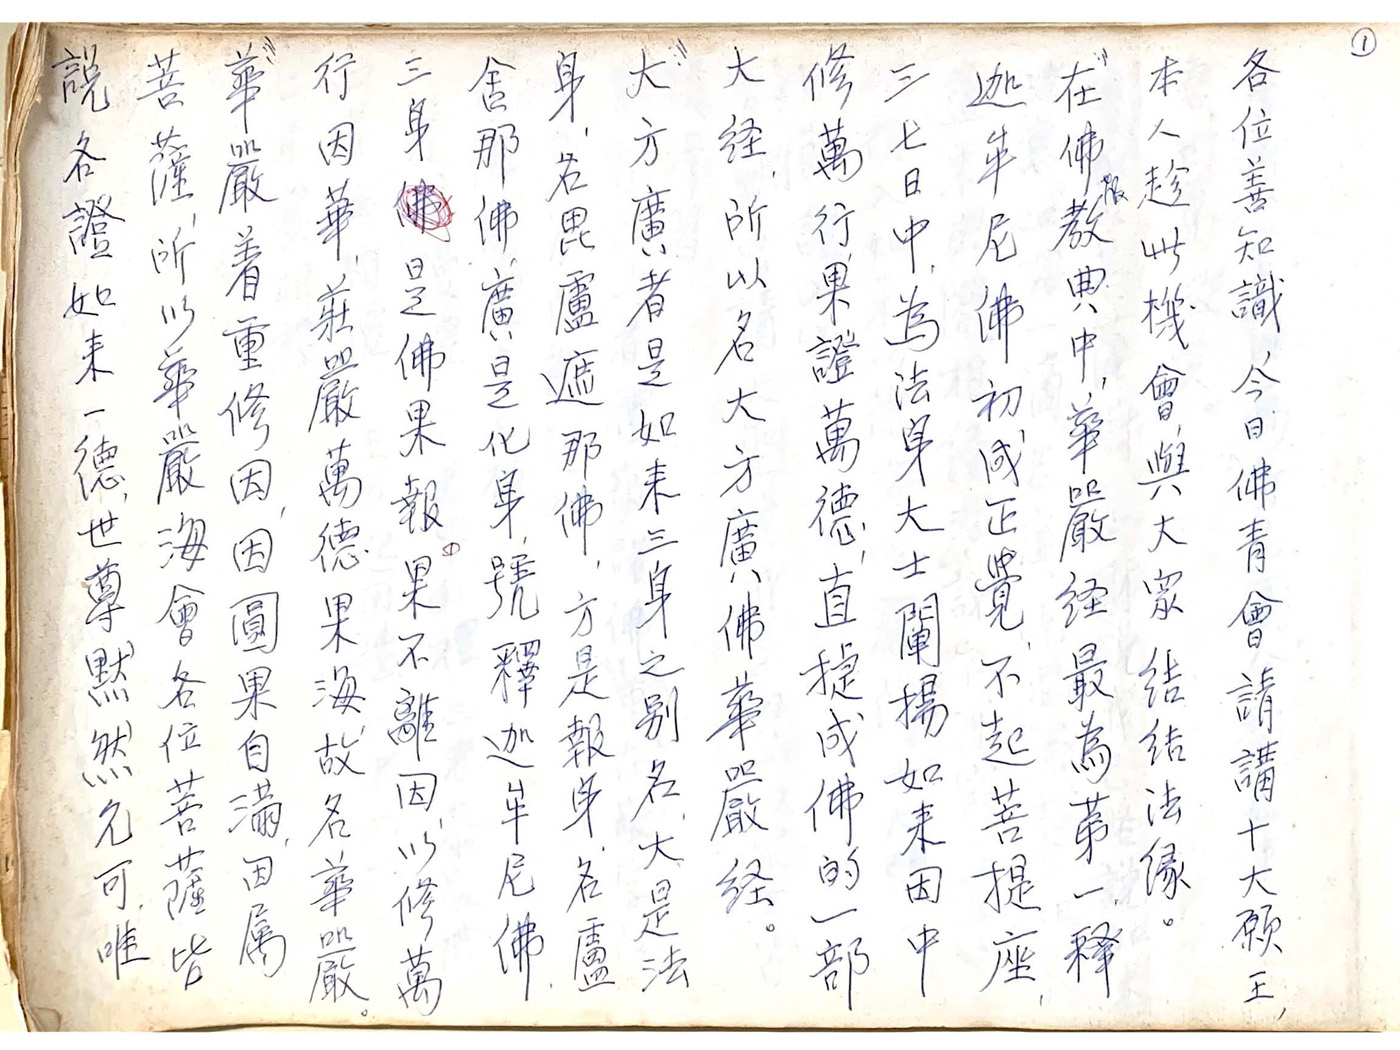 ①
各位善知識,今日佛青會請講十大願王,
本人趁此機會,與大家結結法緣。
在佛教典中,華嚴経最為第一,释
迦牟尼佛初成正覺,不起菩提座,
三七日中,為法身大士闡揚如来因中
修萬行,果證萬德,直提成佛的一部
大経,所以名大方廣佛華嚴経。
大方廣者是如来三身之别名,大是法
身,名毘盧遮那佛,方是報身,名盧
舍那佛,廣是化身,號釋迦牟尼佛.
三身是佛果報。果不離因,以修萬
行因華,莊嚴萬德果海,故名華嚴。
華嚴着重修因,因圓果自滿,因属
菩薩,所以華嚴海會各位菩薩皆
説各證如来一德,世尊默然允可,唯